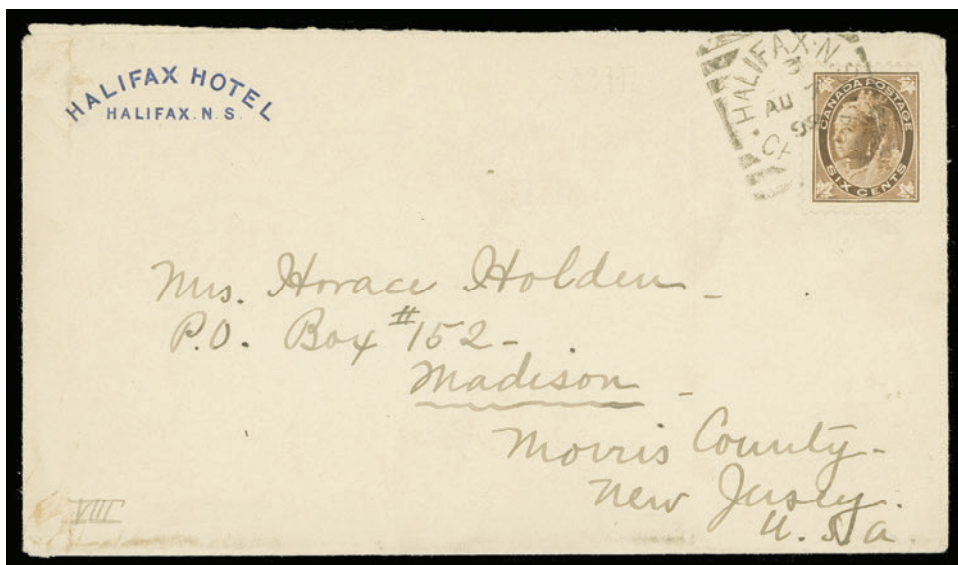 HALIFAX HOTEL
HALIFAX. N. S.
HALIFAX. N
AU
CANADA POSTAGE
SIX CENTS
Mrs. Horace Holden -
P.O. Box #152 -
Madison -
Morris County -
New Jersey.
U. S. a
VIII